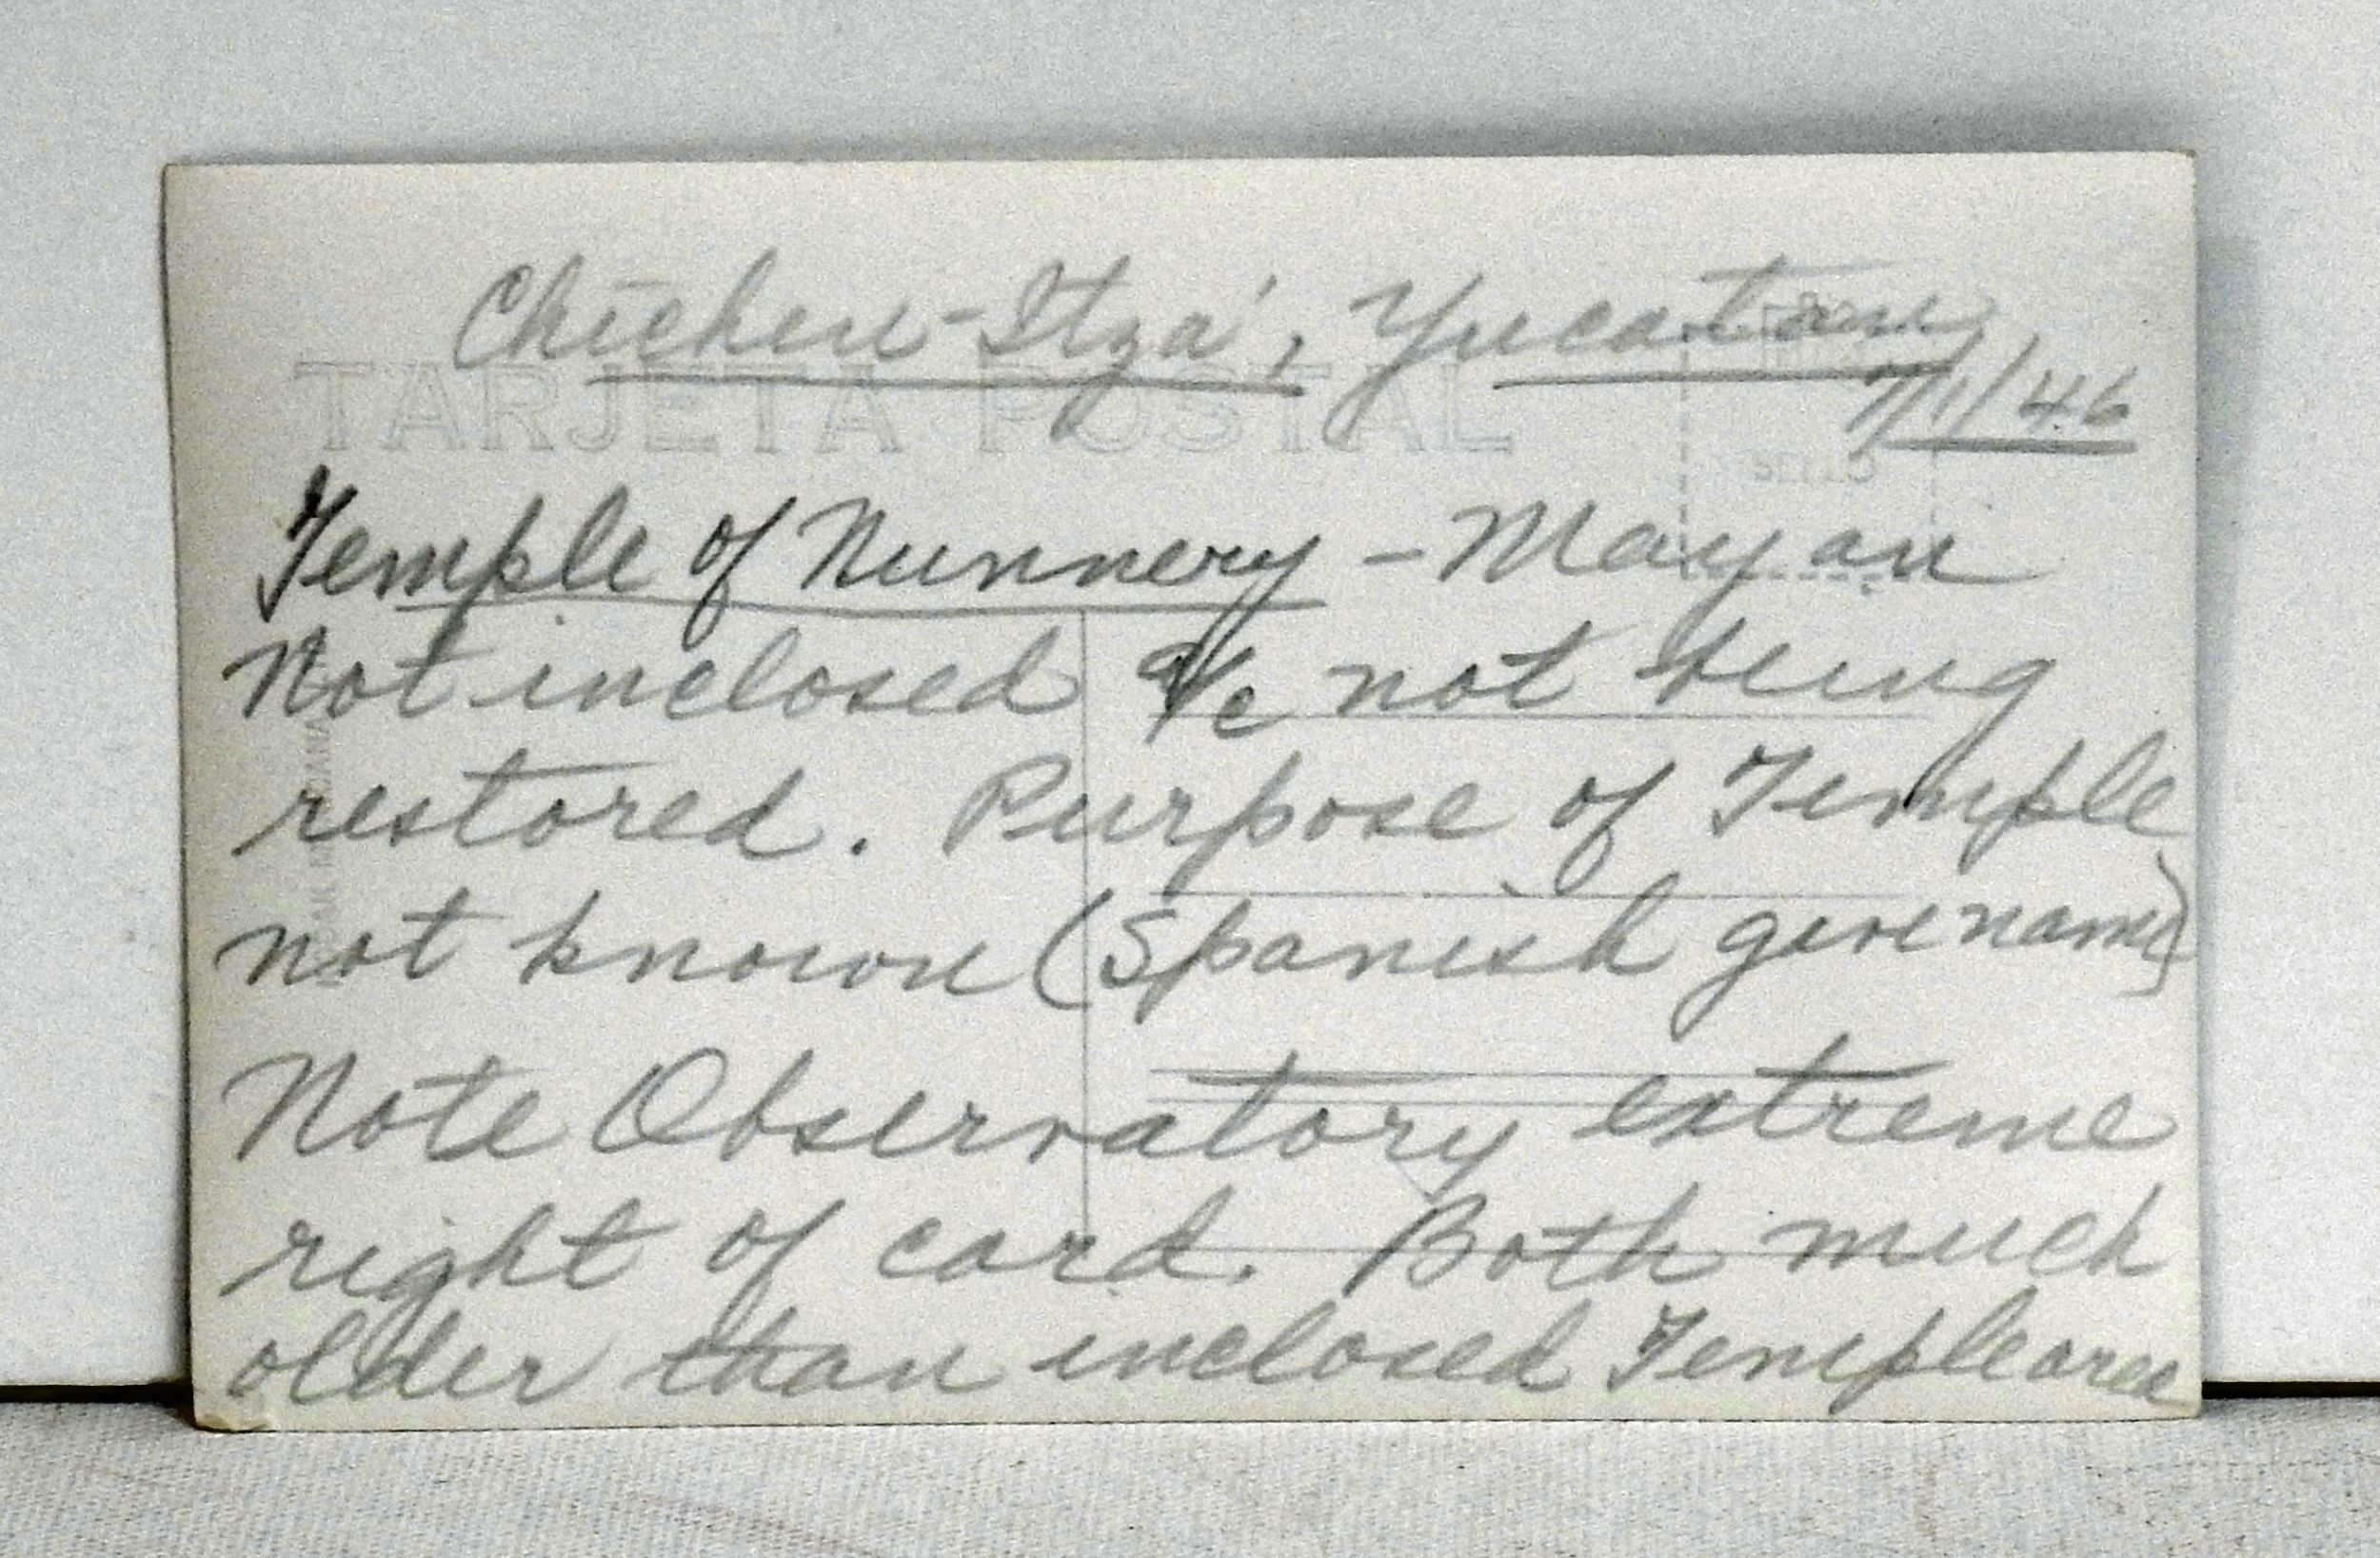 Chichen-Itza', Yucatan,
7/1/46
TARJETA POSTAL
Temple of Nunnery - Mayan
Not inclosed a/c not being
restored. Purpose of Temple
not known (Spanish give name)
Note Observatory extreme
right of card. Both much
older than inclosed Temple area